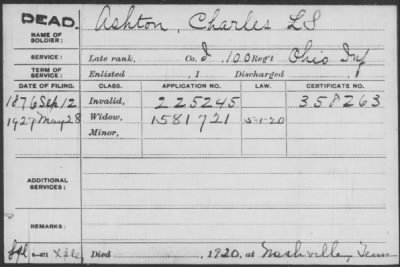 DEAD.
NAME OF SOLDIER: Ashton, Charles L S
SERVICE: Late rank, Co. I, 100 Reg't Ohio Inf
TERM OF SERVICE: Enlisted , 1 Discharged , 1
DATE OF FILING. CLASS. APPLICATION NO. LAW. CERTIFICATE NO.
1876 Sep 12 Invalid, 225245 358263
1927 May 28 Widow, 1581721 5-1-20
Minor,
ADDITIONAL SERVICES:
REMARKS:
Died 1920, at Nashville, Tenn